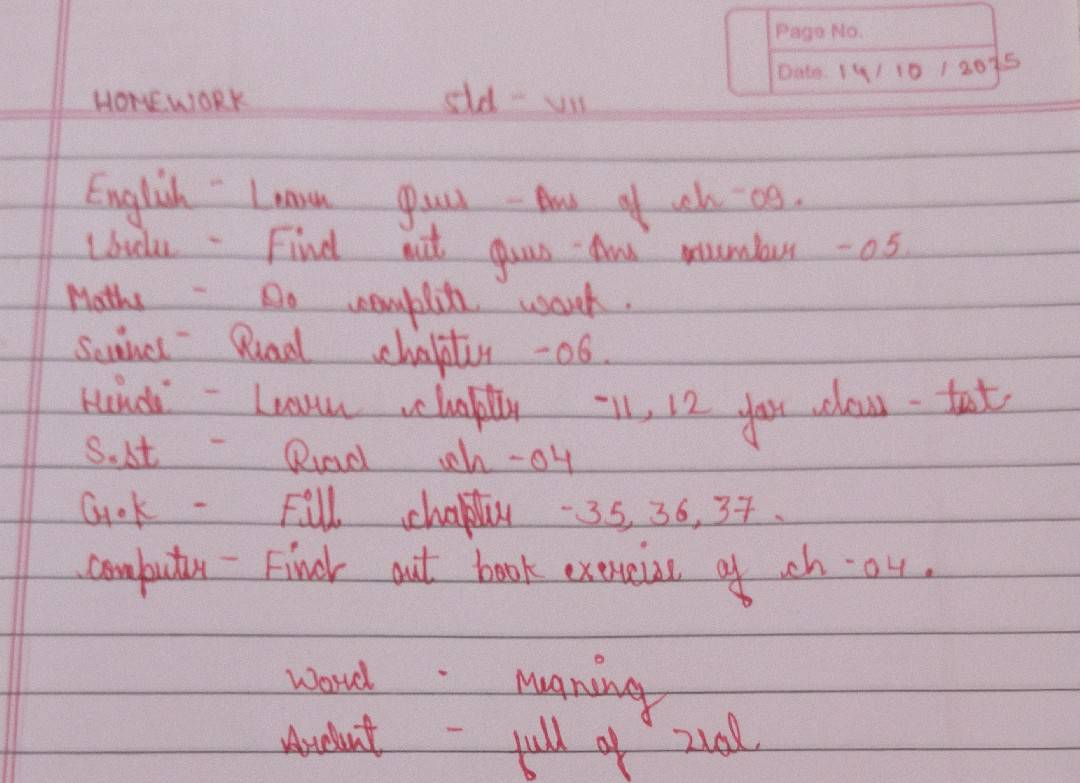 Page No.
Date. 14/10/2025
HOMEWORK Std - VII
English - Learn Ques - Ans of ch - 09.
Urdu - Find out Ques - Ans number - 05.
Maths - Do complete work.
Science - Read chapter - 06.
Hindi - Learn chapter - 11, 12 for class - test
S.st - Read ch - 04
G.k - Fill chapter - 35, 36, 37.
Computer - Find out book exercise of ch - 04.
Word - Meaning
Ardent - full of zeal.